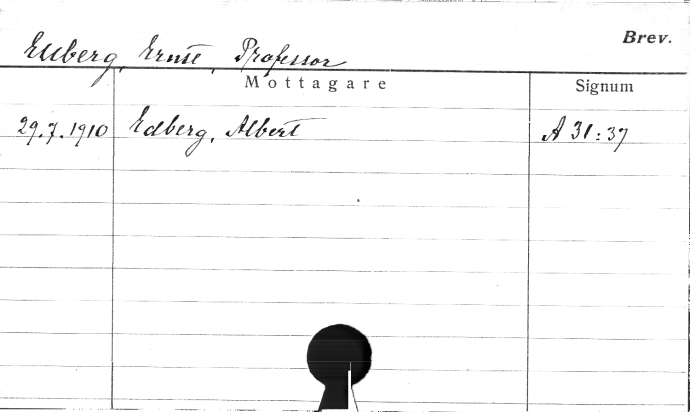 Brev.
Ellberg, Ernst, Professor
Mottagare Signum
29.7.1910 Edberg, Albert A 31:37